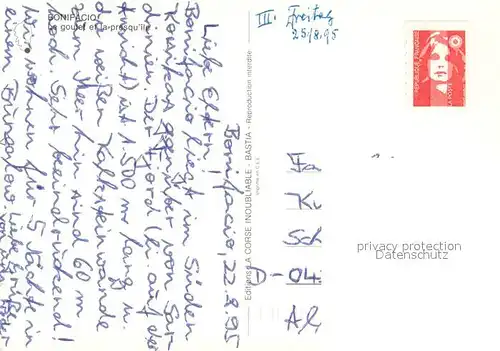 BONIFACIO
Le goulet et la presqu'île
Bonifacio, 22.8.95
Liebe Eltern!
Bonifacio liegt im Süden
Korsikas gegenüber von Sar-
dinien. Der Fjord (kl. auf der
Ansicht) ist 1.500 m lang u.
die weißen Kalksteinwände
zum Meer hin sind 60 m
hoch. Sehr beeindruckend!
Wir wohnen für 5 Nächte in
einem Bungalow. Liebe Grüße
von
Editions LA CORSE INOUBLIABLE - BASTIA - Reproduction interdite
III. Freitag
25/8.95
REPUBLIQUE FRANÇAISE
LA POSTE
Fa
K.
Sch
D-04
Al
privacy protection
Datenschutz